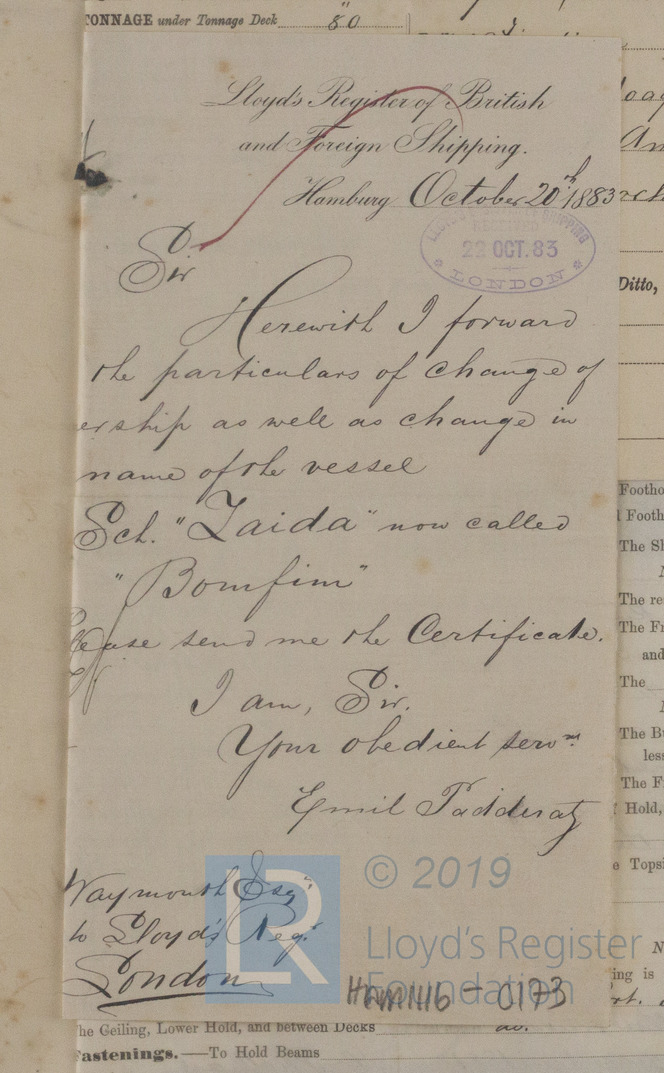 TONNAGE under Tonnage Deck 80
Lloyd's Register of British
and Foreign Shipping.
Hamburg October 20th 1883
SHIPPING
22 OCT. 83
LONDON
Sir
Herewith I forward
the particulars of change of
ership as well as change in
name of the vessel
Sch. "Zaida" now called
"Bomfim"
Please send me the Certificate.
I am, Sir.
Your obedient servnt
Emil Padderatz
Waymouth Esqre
to Lloyd's Regr
London
© 2019
LR
Lloyd's Register
Foundation
HAM1416 - 0173
Ditto,
Footho
Footh
The Sh
The re
The Fr
and
The
The Bu
less
The F
Hold,
e Topsi
ing is
he Ceiling, Lower Hold, and between Decks do.
astenings.—To Hold Beams